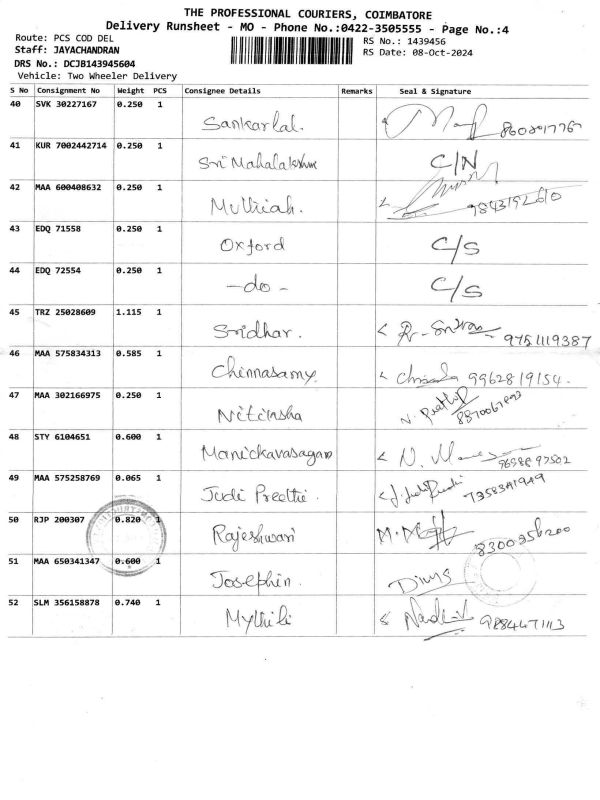 THE PROFESSIONAL COURIERS, COIMBATORE
Delivery Runsheet - MO - Phone No.:0422-3505555 - Page No.:4
Route: PCS COD DEL
RS No.: 1439456
Staff: JAYACHANDRAN
RS Date: 08-Oct-2024
DRS No.: DCJB143945604
Vehicle: Two Wheeler Delivery
S No Consignment No Weight PCS Consignee Details Remarks Seal & Signature
40 SVK 30227167 0.250 1 Sankarlal.
41 KUR 7002442714 0.250 1 Sri Mahalakshmi C/N
42 MAA 600408632 0.250 1 Muthiah.
43 EDQ 71558 0.250 1 Oxford C/S
44 EDQ 72554 0.250 1 -do- C/S
45 TRZ 25028609 1.115 1 Sridhar. 9751119387
46 MAA 575834313 0.585 1 Chinnasamy 9962819154.
47 MAA 302166975 0.250 1 Nitinsha
48 STY 6104651 0.600 1 Manickavasagam
49 MAA 575258769 0.065 1 Judi Preethi.
50 RJP 200307 0.820 1 Rajeshwari 8300356200
51 MAA 650341347 0.600 1 Josephin.
52 SLM 356158878 0.740 1 Mythili 9884471113